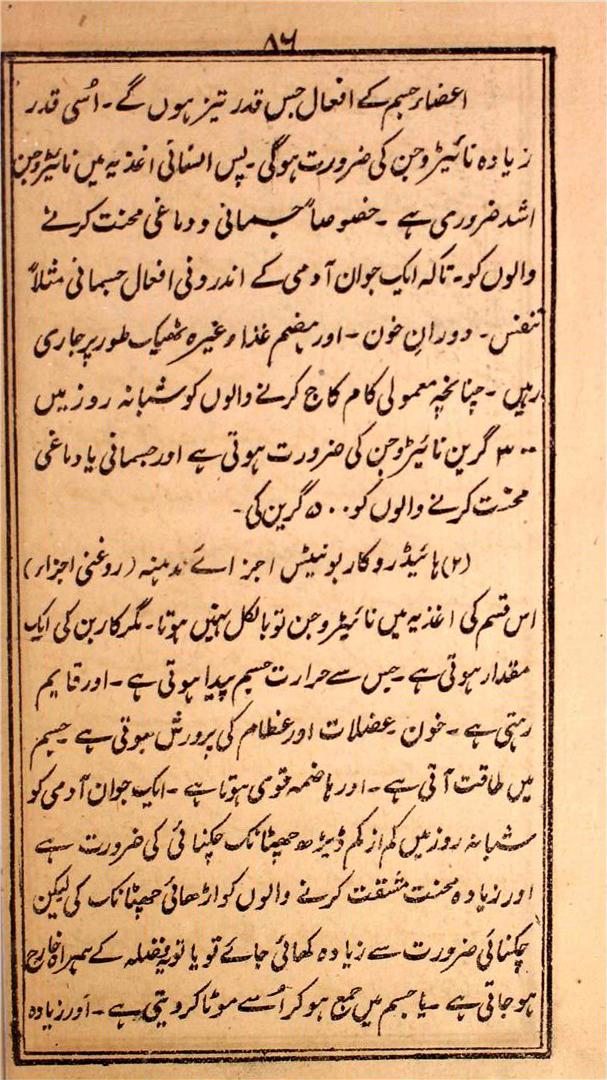 ۸۶
اعضاء جسم کے افعال جس قدر تیز ہوں گے۔ اُسی قدر
زیادہ نائیٹروجن کی ضرورت ہوگی۔ پس انسانی اغذیہ میں نائیٹروجن
اشد ضروری ہے۔ خصوصاً جسمانی و دماغی محنت کرنے
والوں کو۔ تاکہ ایک جوان آدمی کے اندرونی افعال جسمانی مثلاً
تنفس۔ دورانِ خون۔ اور ہضم غذا وغیرہ ٹھیک طور پر جاری
رہیں۔ چنانچہ معمولی کام کاج کرنے والوں کو شبانہ روز میں
۳۰۰ گرین نائیٹروجن کی ضرورت ہوتی ہے اور جسمانی یا دماغی
محنت کرنے والوں کو ۵۰۰ گرین کی۔
(۲) ہائیڈروکاربونیٹس اجزائے دہنیہ (روغنی اجزاء)
اس قسم کی اغذیہ میں نائیٹروجن تو بالکل نہیں ہوتا۔ مگر کاربن کی ایک
مقدار ہوتی ہے۔ جس سے حرارت جسم پیدا ہوتی ہے۔ اور قایم
رہتی ہے۔ خون عضلات اور عظام کی پرورش ہوتی ہے جسم
میں طاقت آتی ہے۔ اور ہاضمہ قوی ہوتا ہے۔ ایک جوان آدمی کو
شبانہ روز میں کم از کم ڈیڑھ چھٹانک چکنائی کی ضرورت ہے
اور زیادہ محنت مشقت کرنے والوں کو اڑھائی چھٹانک کی لیکن
چکنائی ضرورت سے زیادہ کھائی جائے تو یا تو یہ فضلہ کے ہمراہ خارج
ہو جاتی ہے۔ یا جسم میں جمع ہو کر اُسے موٹا کر دیتی ہے۔ اور زیادہ